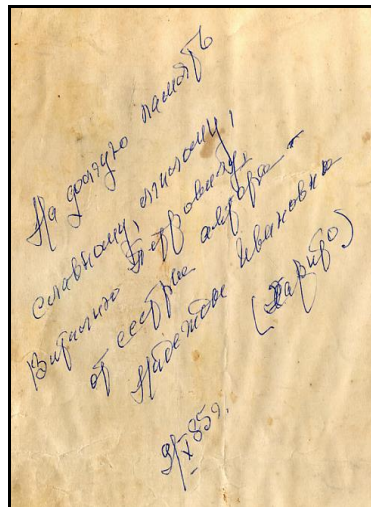 На долгую память
славному, милому,
Виталию Петровичу
от сестры
Надежды Ивановны
(Харито)
9/X 85г.